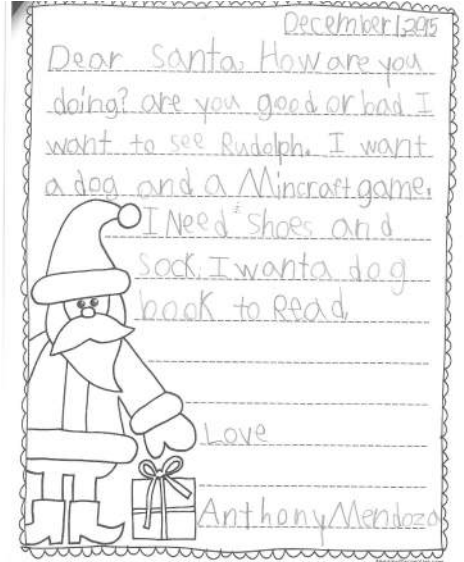 December 1, 2015
Dear Santa, How are you
doing? are you good or bad I
want to see Rudolph. I want
a dog and a Mincraft game.
I Need Shoes and
Sock. I want a dog
book to Read.
Love
Anthony Mendoza